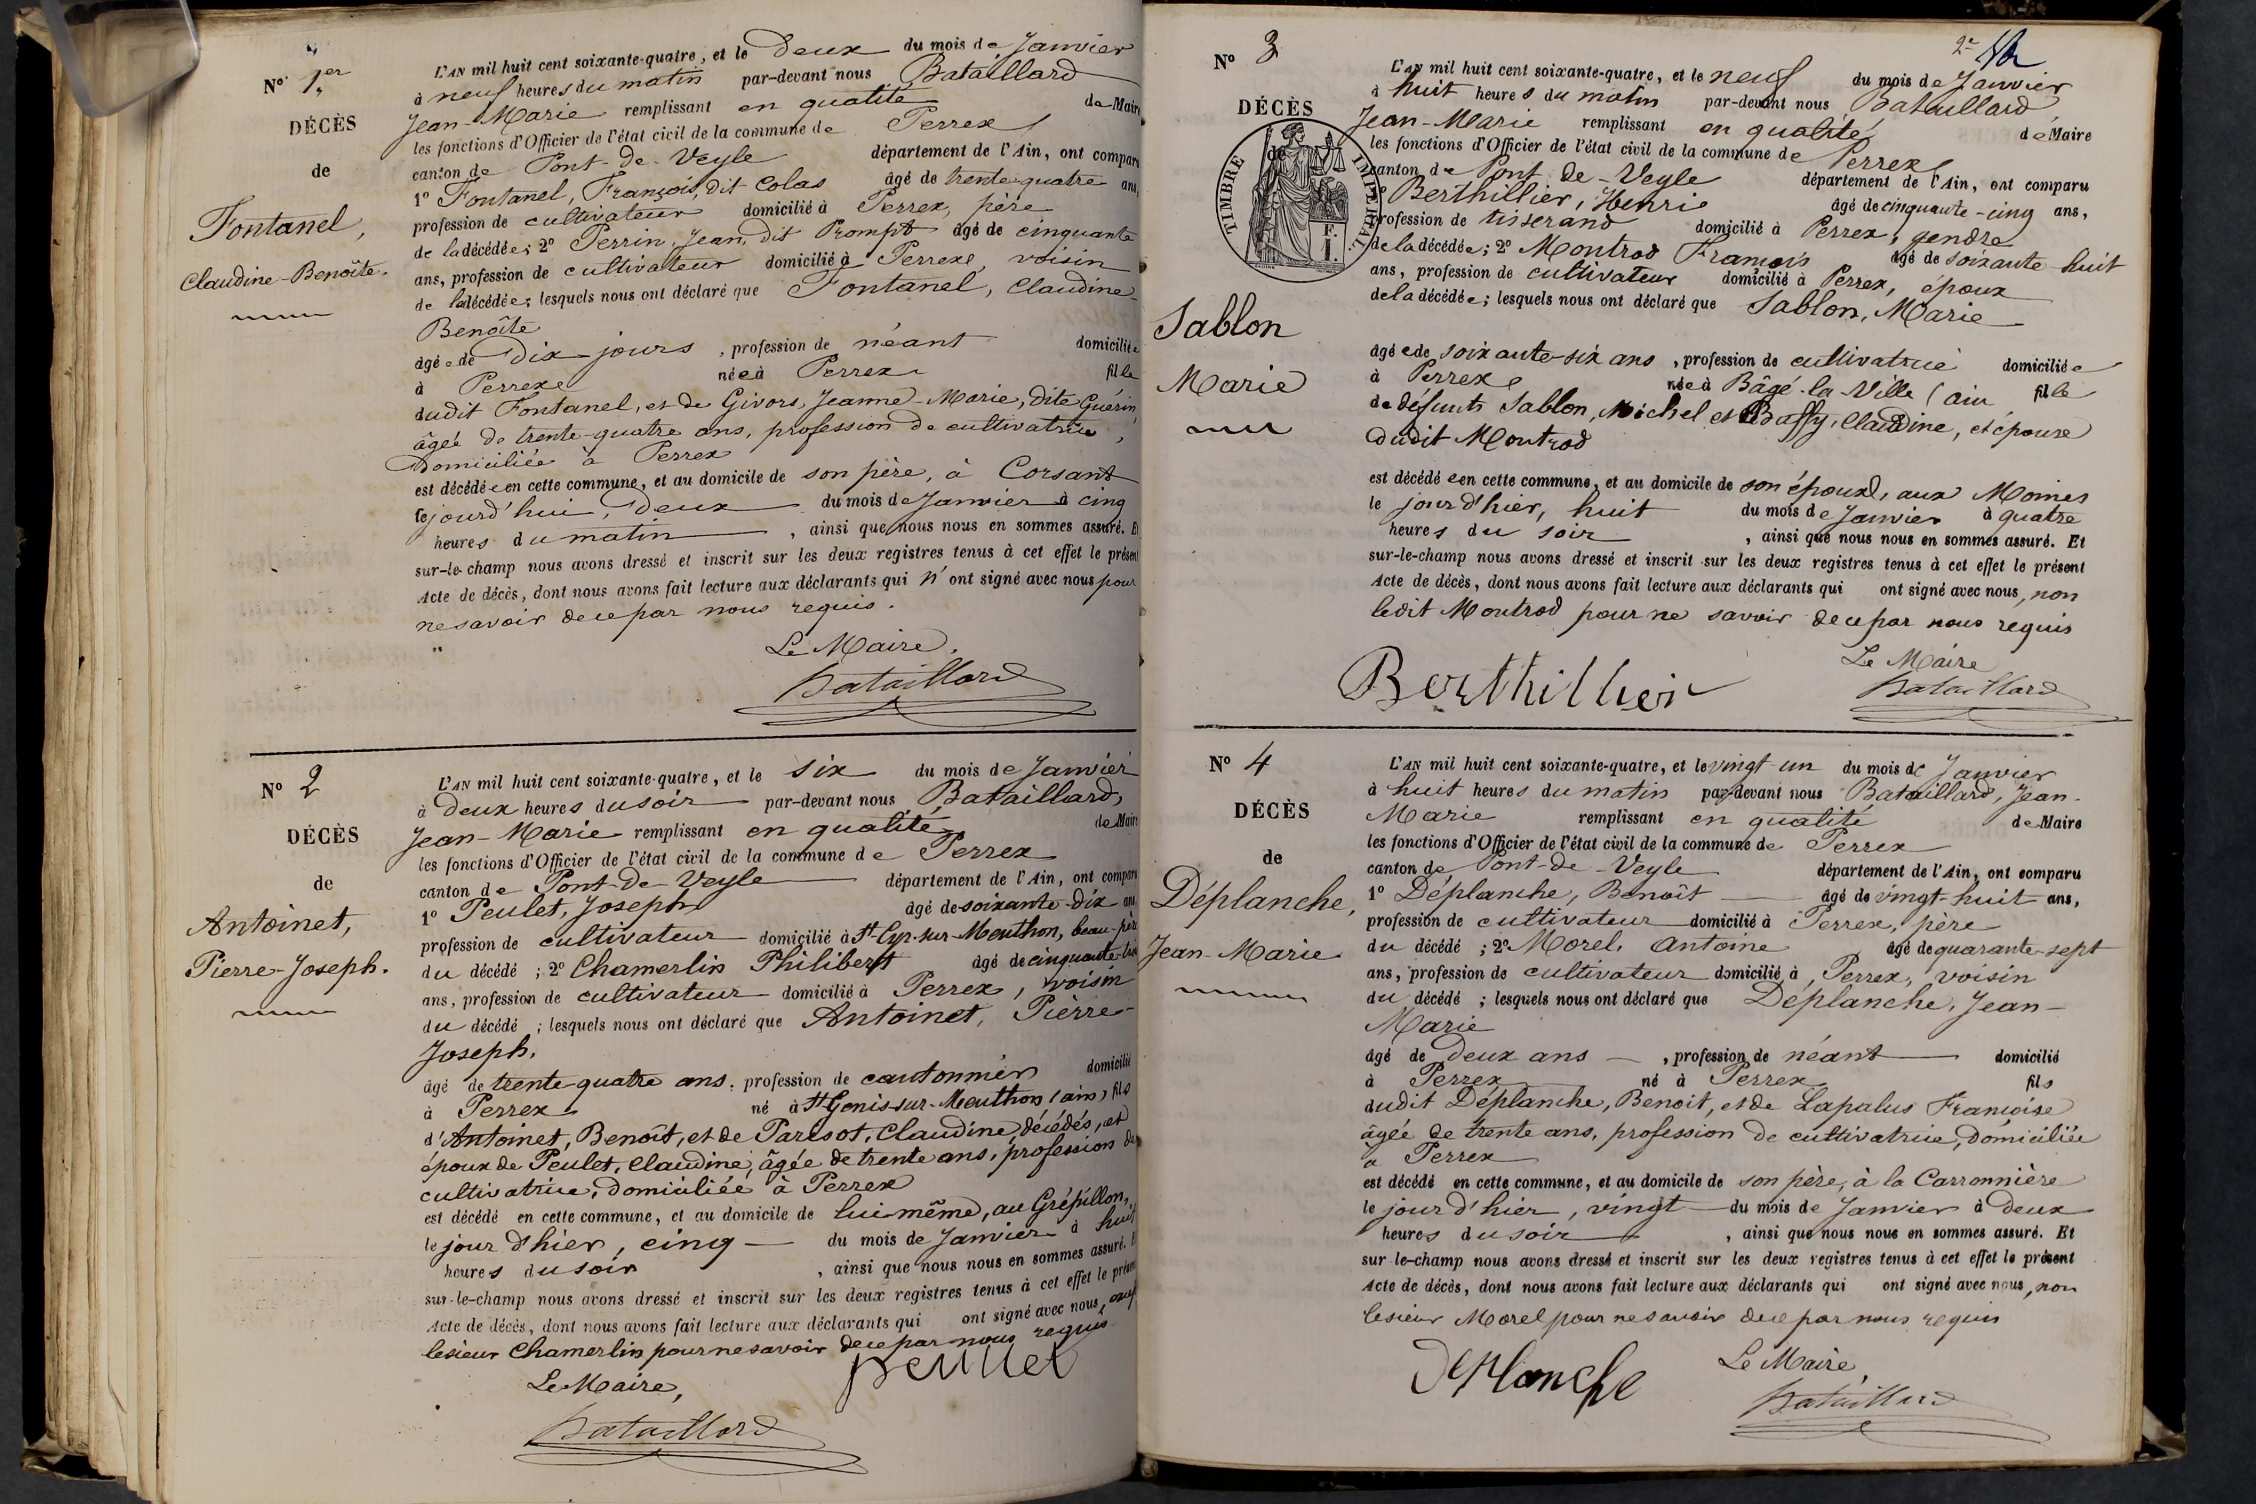 Nº 1er
DÉCÈS
de
Fontanel,
Claudine-Benoîte.
L'AN mil huit cent soixante-quatre, et le Deux du mois de Janvier
à neuf heures du matin par-devant nous Bataillard
Jean-Marie remplissant en qualité de Maire
les fonctions d'Officier de l'état civil de la commune de Perrex
canton de Pont-de-Veyle département de l'Ain, ont compar
1º Fontanel, François, dit Colas âgé de trente-quatre ans,
profession de cultivateur domicilié à Perrex, père
de la décédée; 2º Perrin, Jean, dit Prompt âgé de cinquante
ans, profession de cultivateur domicilié à Perrex, voisin
de la décédée; lesquels nous ont déclaré que Fontanel, Claudine-
Benoîte
âgée de Dix jours, profession de néant domiciliée
à Perrex née à Perrex fille
dudit Fontanel, et de Givors, Jeanne-Marie, dite Guérin,
âgée de trente-quatre ans, profession de cultivatrice,
Domiciliée à Perrex
est décédée en cette commune, et au domicile de son père, à Corsant
le jourd'hui, Deux du mois de Janvier à cinq
heures du matin, ainsi que nous nous en sommes assuré. Et
sur-le-champ nous avons dressé et inscrit sur les deux registres tenus à cet effet le présent
Acte de décès, dont nous avons fait lecture aux déclarants qui n'ont signé avec nous pour
ne savoir de ce par nous requis.
Le Maire.
Bataillard
Nº 2
DÉCÈS
de
Antoinet,
Pierre-Joseph.
L'AN mil huit cent soixante-quatre, et le six du mois de Janvier
à deux heures du soir par-devant nous Bataillard,
Jean-Marie remplissant en qualité de Maire
les fonctions d'Officier de l'état civil de la commune de Perrex
canton de Pont-de-Veyle département de l'Ain, ont comparu
1º Peulet, Joseph âgé de soixante-dix ans
profession de cultivateur domicilié à St-Cyr-sur-Menthon, beau-père
du décédé; 2º Chamerlin Philibert âgé de cinquante-
ans, profession de cultivateur domicilié à Perrex, voisin
du décédé; lesquels nous ont déclaré que Antoinet, Pierre-
Joseph.
âgé de trente-quatre ans. profession de cantonnier domicilié
à Perrex né à St-Genis-sur-Menthon (ain) fils
d'Antoinet, Benoît, et de Parisot, Claudine, décédés, et
époux de Peulet, Claudine, âgée de trente ans, profession de
cultivatrice, domiciliée à Perrex
est décédé en cette commune, et au domicile de lui-même, au Grépillon,
le jour d'hier, cinq du mois de Janvier à huit
heures du soir, ainsi que nous nous en sommes assuré. E
sur-le-champ nous avons dressé et inscrit sur les deux registres tenus à cet effet le présent
Acte de décès, dont nous avons fait lecture aux déclarants qui ont signé avec nous,
le sieur Chamerlin pour ne savoir de ce par nous requis
Le Maire,
peullet
Bataillard
2e
Nº 3
DÉCÈS
de
TIMBRE IMPÉRIAL.
F.
I.
Sablon
Marie
L'AN mil huit cent soixante-quatre, et le neuf du mois de Janvier
à huit heures du matin par-devant nous Bataillard
Jean-Marie remplissant en qualité de Maire
les fonctions d'Officier de l'état civil de la commune de Perrex
canton de Pont-de-Veyle département de l'Ain, ont comparu
Berthillier, Henri âgé de cinquante-cinq ans,
profession de tisserand domicilié à Perrex, gendre
de la décédée; 2º Montrod François âgé de soixante-huit
ans, profession de cultivateur domicilié à Perrex, époux
de la décédée; lesquels nous ont déclaré que Sablon, Marie
âgée de soixante-six ans, profession de cultivatrice domiciliée
à Perrex née à Bâgé-la-Ville (ain fille
de défunts Sablon, Michel et Buffy, Claudine, et épouse
dudit Montrod
est décédée en cette commune, et au domicile de son époux, aux Moines
le jour d'hier, huit du mois de Janvier à quatre
heures du soir, ainsi que nous nous en sommes assuré. Et
sur-le-champ nous avons dressé et inscrit sur les deux registres tenus à cet effet le présent
Acte de décès, dont nous avons fait lecture aux déclarants qui ont signé avec nous, non
ledit Montrod pour ne savoir de ce par nous requis
Le Maire
Berthillier
Bataillard
Nº 4
DÉCÈS
de
Déplanche,
Jean-Marie
L'AN mil huit cent soixante-quatre, et le vingt-un du mois de Janvier
à huit heures du matin par-devant nous Bataillard, Jean-
Marie remplissant en qualité de Maire
les fonctions d'Officier de l'état civil de la commune de Perrex
canton de Pont-de-Veyle département de l'Ain, ont comparu
1º Déplanche, Benoît âgé de vingt-huit ans,
profession de cultivateur domicilié à Perrex, père
du décédé; 2º Morel, Antoine âgé de quarante-sept
ans, profession de cultivateur domicilié à Perrex, voisin
du décédé; lesquels nous ont déclaré que Déplanche, Jean-
Marie
âgé de Deux ans, profession de néant domicilié
à Perrex né à Perrex fils
dudit Déplanche, Benoit, et de Lapalus Françoise
âgée de trente ans, profession de cultivatrice, domiciliée
à Perrex
est décédé en cette commune, et au domicile de son père, à la Carronnière
le jour d'hier, vingt du mois de Janvier à deux
heures du soir, ainsi que nous nous en sommes assuré. Et
sur-le-champ nous avons dressé et inscrit sur les deux registres tenus à cet effet le présent
Acte de décès, dont nous avons fait lecture aux déclarants qui ont signé avec nous, non
le sieur Morel pour ne savoir de ce par nous requis
Le Maire,
Deplanche
Bataillard